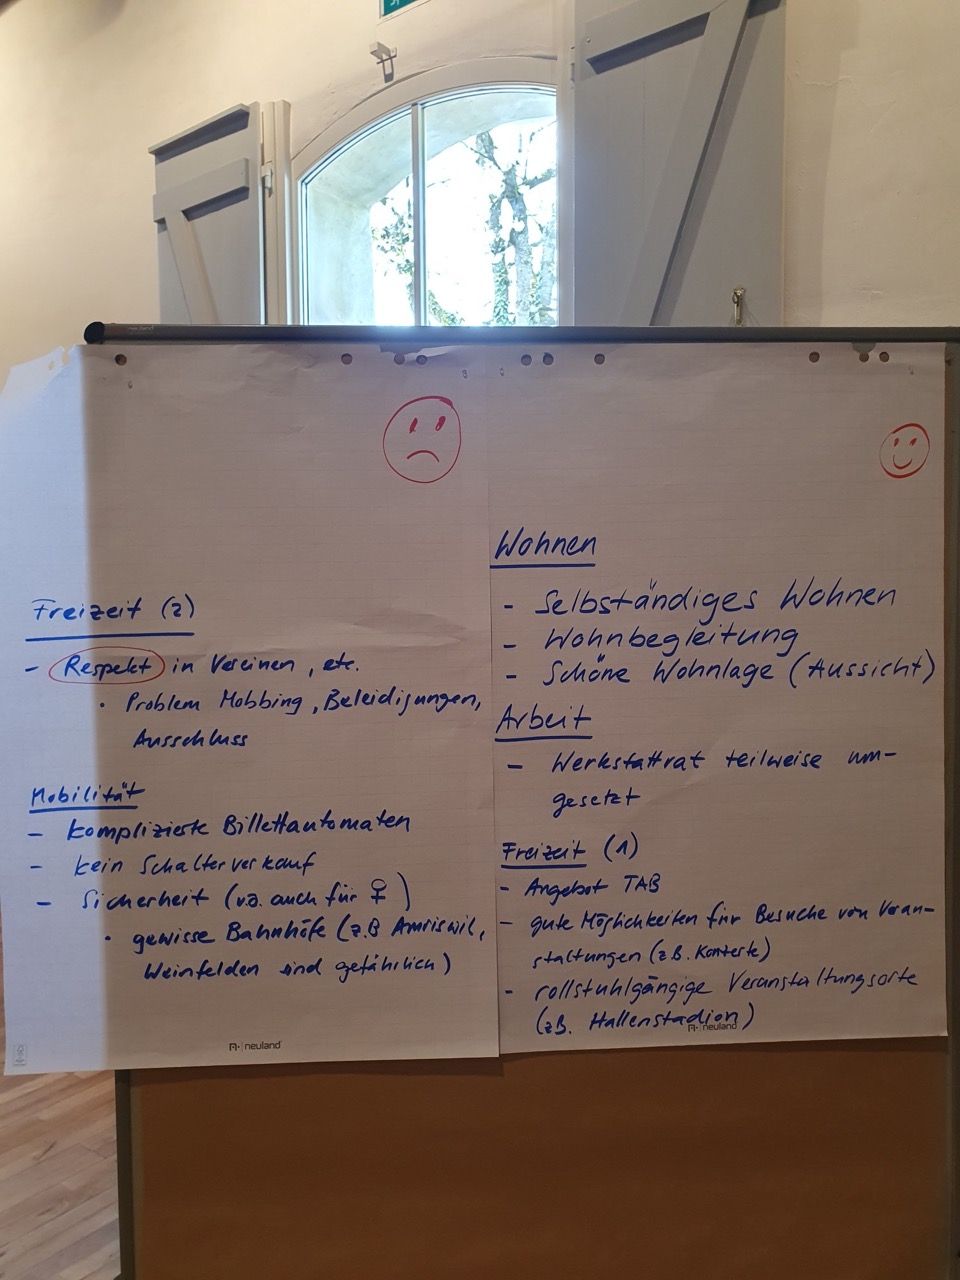 Freizeit (2)
- Respekt in Vereinen, etc.
• Problem Mobbing, Beleidigungen,
Ausschluss
Mobilität
- komplizierte Billettautomaten
- kein Schalterverkauf
- Sicherheit (v.a. auch für ♀)
• gewisse Bahnhöfe (z.B Amriswil,
Weinfelden sind gefährlich)
neuland
Wohnen
- Selbständiges Wohnen
- Wohnbegleitung
- Schöne Wohnlage (Aussicht)
Arbeit
- Werkstattrat teilweise um-
gesetzt
Freizeit (1)
- Angebot TAB
- gute Möglichkeiten für Besuche von Veran-
staltungen (z.B. Konzerte)
- rollstuhlgängige Veranstaltungsorte
(z.B. Hallenstadion)
neuland